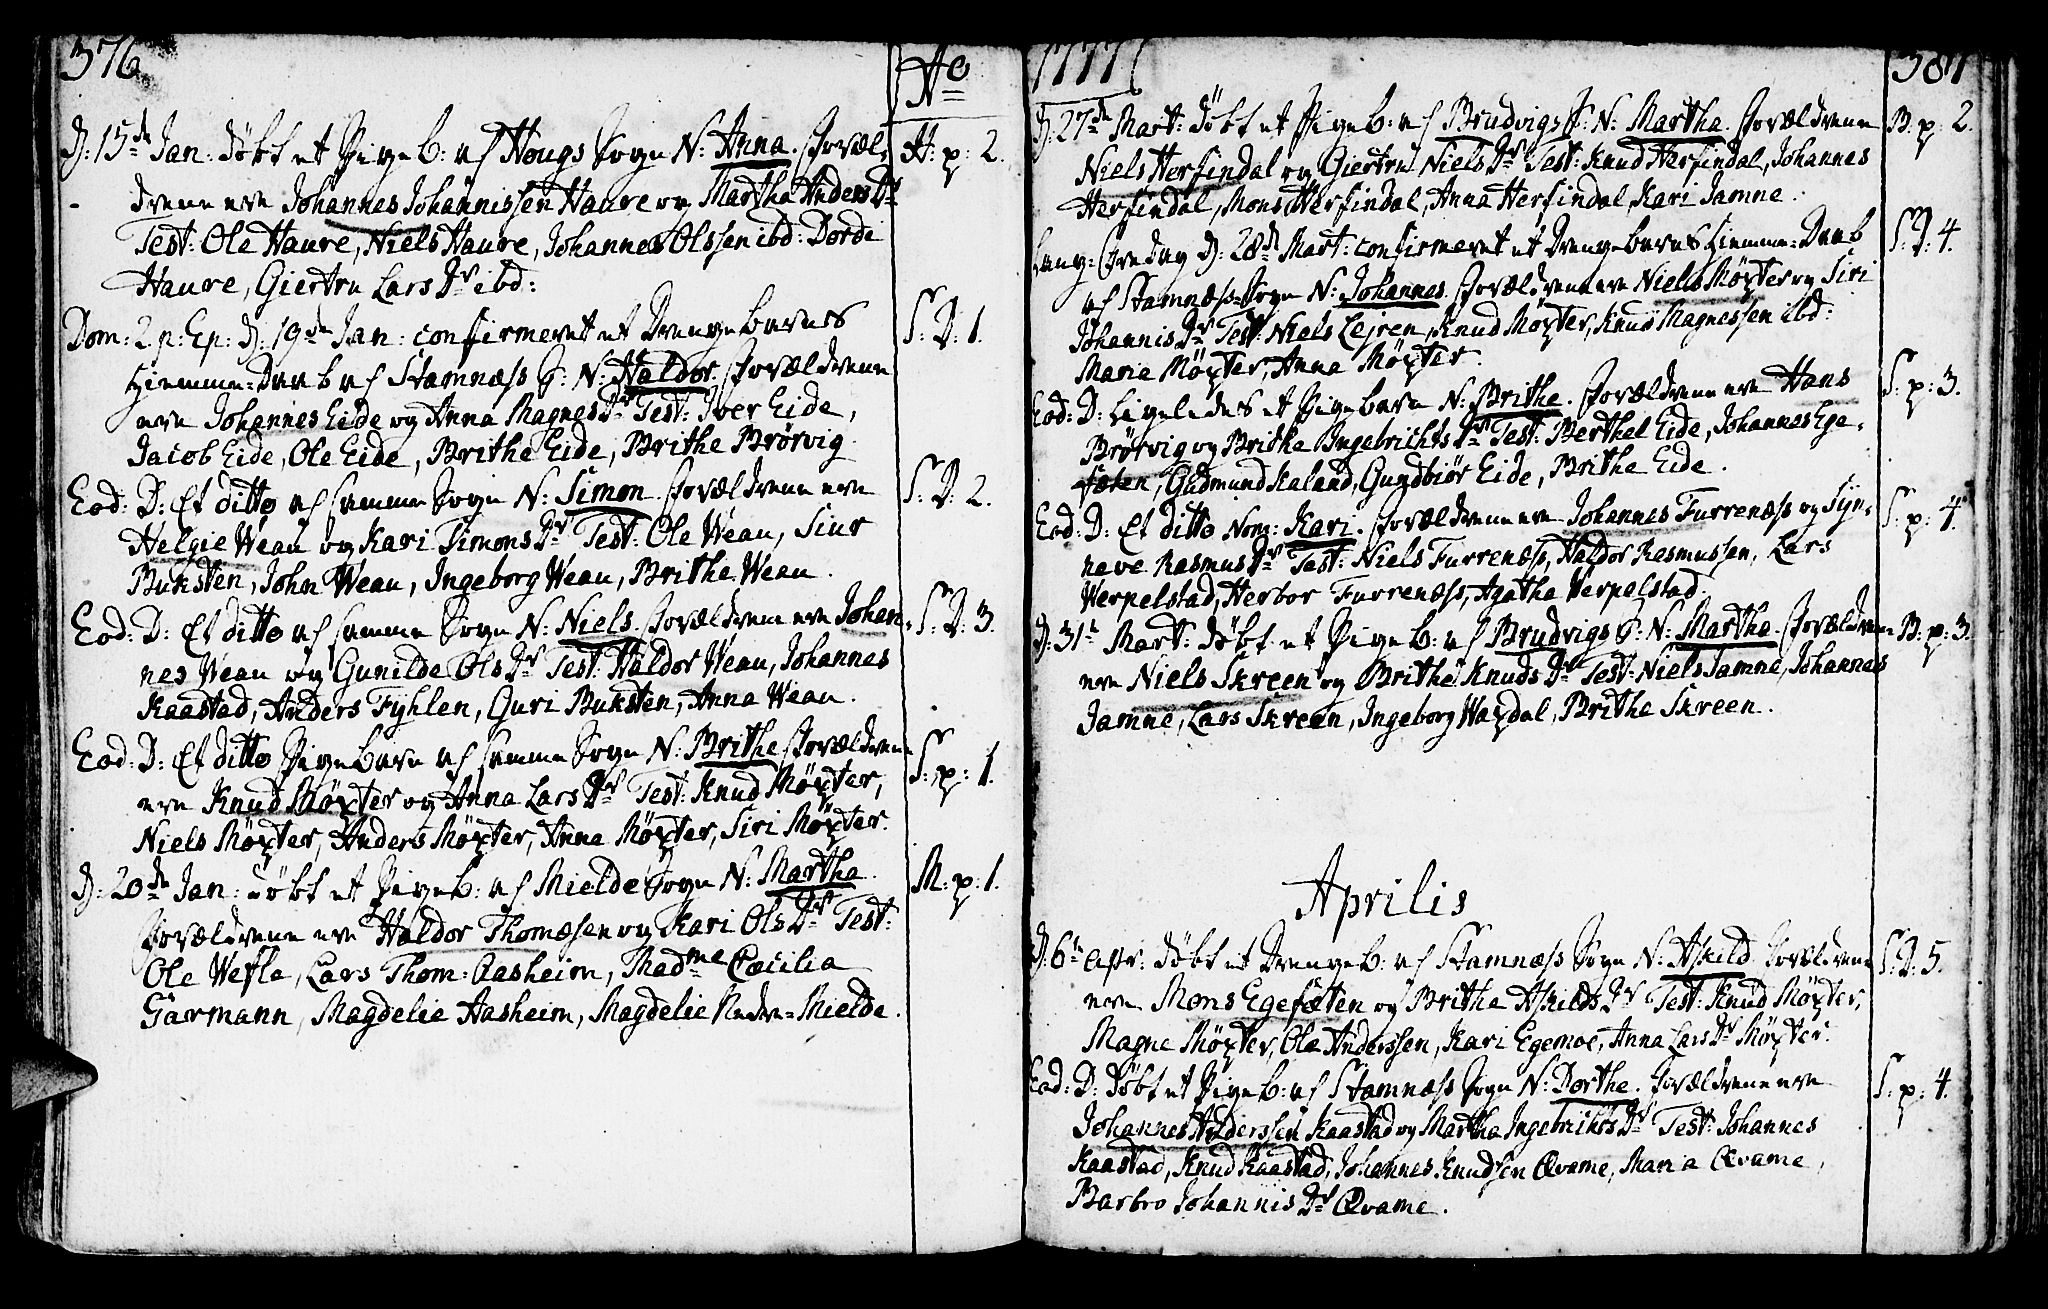 376
Ao
D: 15de Jan: døbt et Pigeb: af Hougs Sogn N: Anna. Foræl- H: p: 2.
drene ere Johannes Johannissen Haure og Martha Anders Dr
Test: Ole Haure, Niels Haure, Johannes Olssen ibd: Dorde
Haure, Giertru Lars Dr ibd:
Dom: 2 p: Ep: d: 19de Jan: confirmeret et Drengebarns S: D: 1.
Hiemme-Daab af Stamnæss S: N: Haldor. Forældrene
ere Johannes Eide og Anna Magnes Dr Test: Iver Eide,
Jacob Eide, Ole Eide, Brithe Eide, Brithe Brørvig.
Eod: D: Et ditto af samme Sogn N: Simon. Forældrene ere S: D: 2.
Helgie Weau og Kari Simons Dr Test: Ole Weau, Siur
Buksten, John Weau, Ingeborg Weau, Brithe Weau.
Eod: D: Et ditto af samme Sogn N: Niels. Forældrene ere Johan- S: D: 3.
nes Weau og Gunilde Ols Dr Test: Haldor Weau, Johannes
Kaastad, Anders Fyhlen, Guri Buksten, Anna Weau.
Eod: D: Et ditto Pigebarn af samme Sogn N: Brithe Forældrene S: p: 1.
ere Knud Møxter og Anna Lars Dr Test: Knud Møxter,
Niels Møxter, Anders Møxter, Anna Møxter, Siri Møxter.
D: 20de Jan: døbt et Pigeb: af Mielde Sogn N: Martha. M: p: 1.
Forældrene ere Haldor Thomæsen og Kari Ols Dr Test:
Ole Wefle, Lars Thom: Aasheim, Madme Cæcilia
Garmann, Magdelie Aasheim, Magdelie Nedre-Mielde.
1777
387
D: 27de Mart: døbt et Pigeb: af Brudvigs S: N: Martha. Forældrene B: p: 2.
Niels Herfindal og Giertru Niels Dr Test: Knud Herfindal, Johannes
Herfindal, Mons Herfindal, Anna Herfindal, Kari Jamne.
Lang-Fredag d: 28de Mart: confirmeret et Drengebarns Hiemme-Daab S: D: 4.
af Stamnæss Sogn N: Johannes. Forældrene ere Niels Møxter og Siri
Johannis Dr Test: Niels Lejren, Knud Møxter, Knud Magnessen ibd:
Maria Møxter, Anna Møxter.
Eod: D: Ligeledes et Pigebarn N: Brithe. Forældrene ere Hans S: p: 3.
Brørvig og Brithe Ingebrichts Dr Test: Berthel Eide, Johannes Ege-
sæten, Gudmund Kaland, Gundbiør Eide, Brithe Eide.
Eod: D: Et ditto Nom: Kari. Forældrene ere Johannes Furrenæss og Syn- S: p: 4.
neve Rasmus Dr Test: Niels Furrenæss, Haldor Rasmussen, Lars
Werpelstad, Herbor Furrenæss, Agatha Werpelstad.
D: 31te Mart: døbt et Pigeb: af Brudvigs S: N: Martha. Forældrene B: p: 3.
ere Niels Skreen og Brithe Knuds Dr Test: Niels Jamne, Johannes
Jamne, Lars Skreen, Ingeborg Waxdal, Brithe Skreen.
Aprilis
D: 6te Apr: døbt et Drengeb: af Stamnæss Sogn N: Askild. Forældrene S: D: 5.
ere Mons Egesæten og Brithe Askilds Dr Test: Knud Møxter,
Magne Møxter, Ole Anderssen, Kari Egemoe, Anna Lars Dr Møxter.
Eod: D: døbt et Pigeb: af Stamnæss Sogn N: Dorthe. Forældrene ere S: p: 4.
Johannes Anderssen Kaastad og Martha Ingebrichts Dr Test: Johannes
Kaastad, Knud Kaastad, Johannes Knudsen Qvame, Maria Qvame,
Barbro Johannis Dr Qvame.